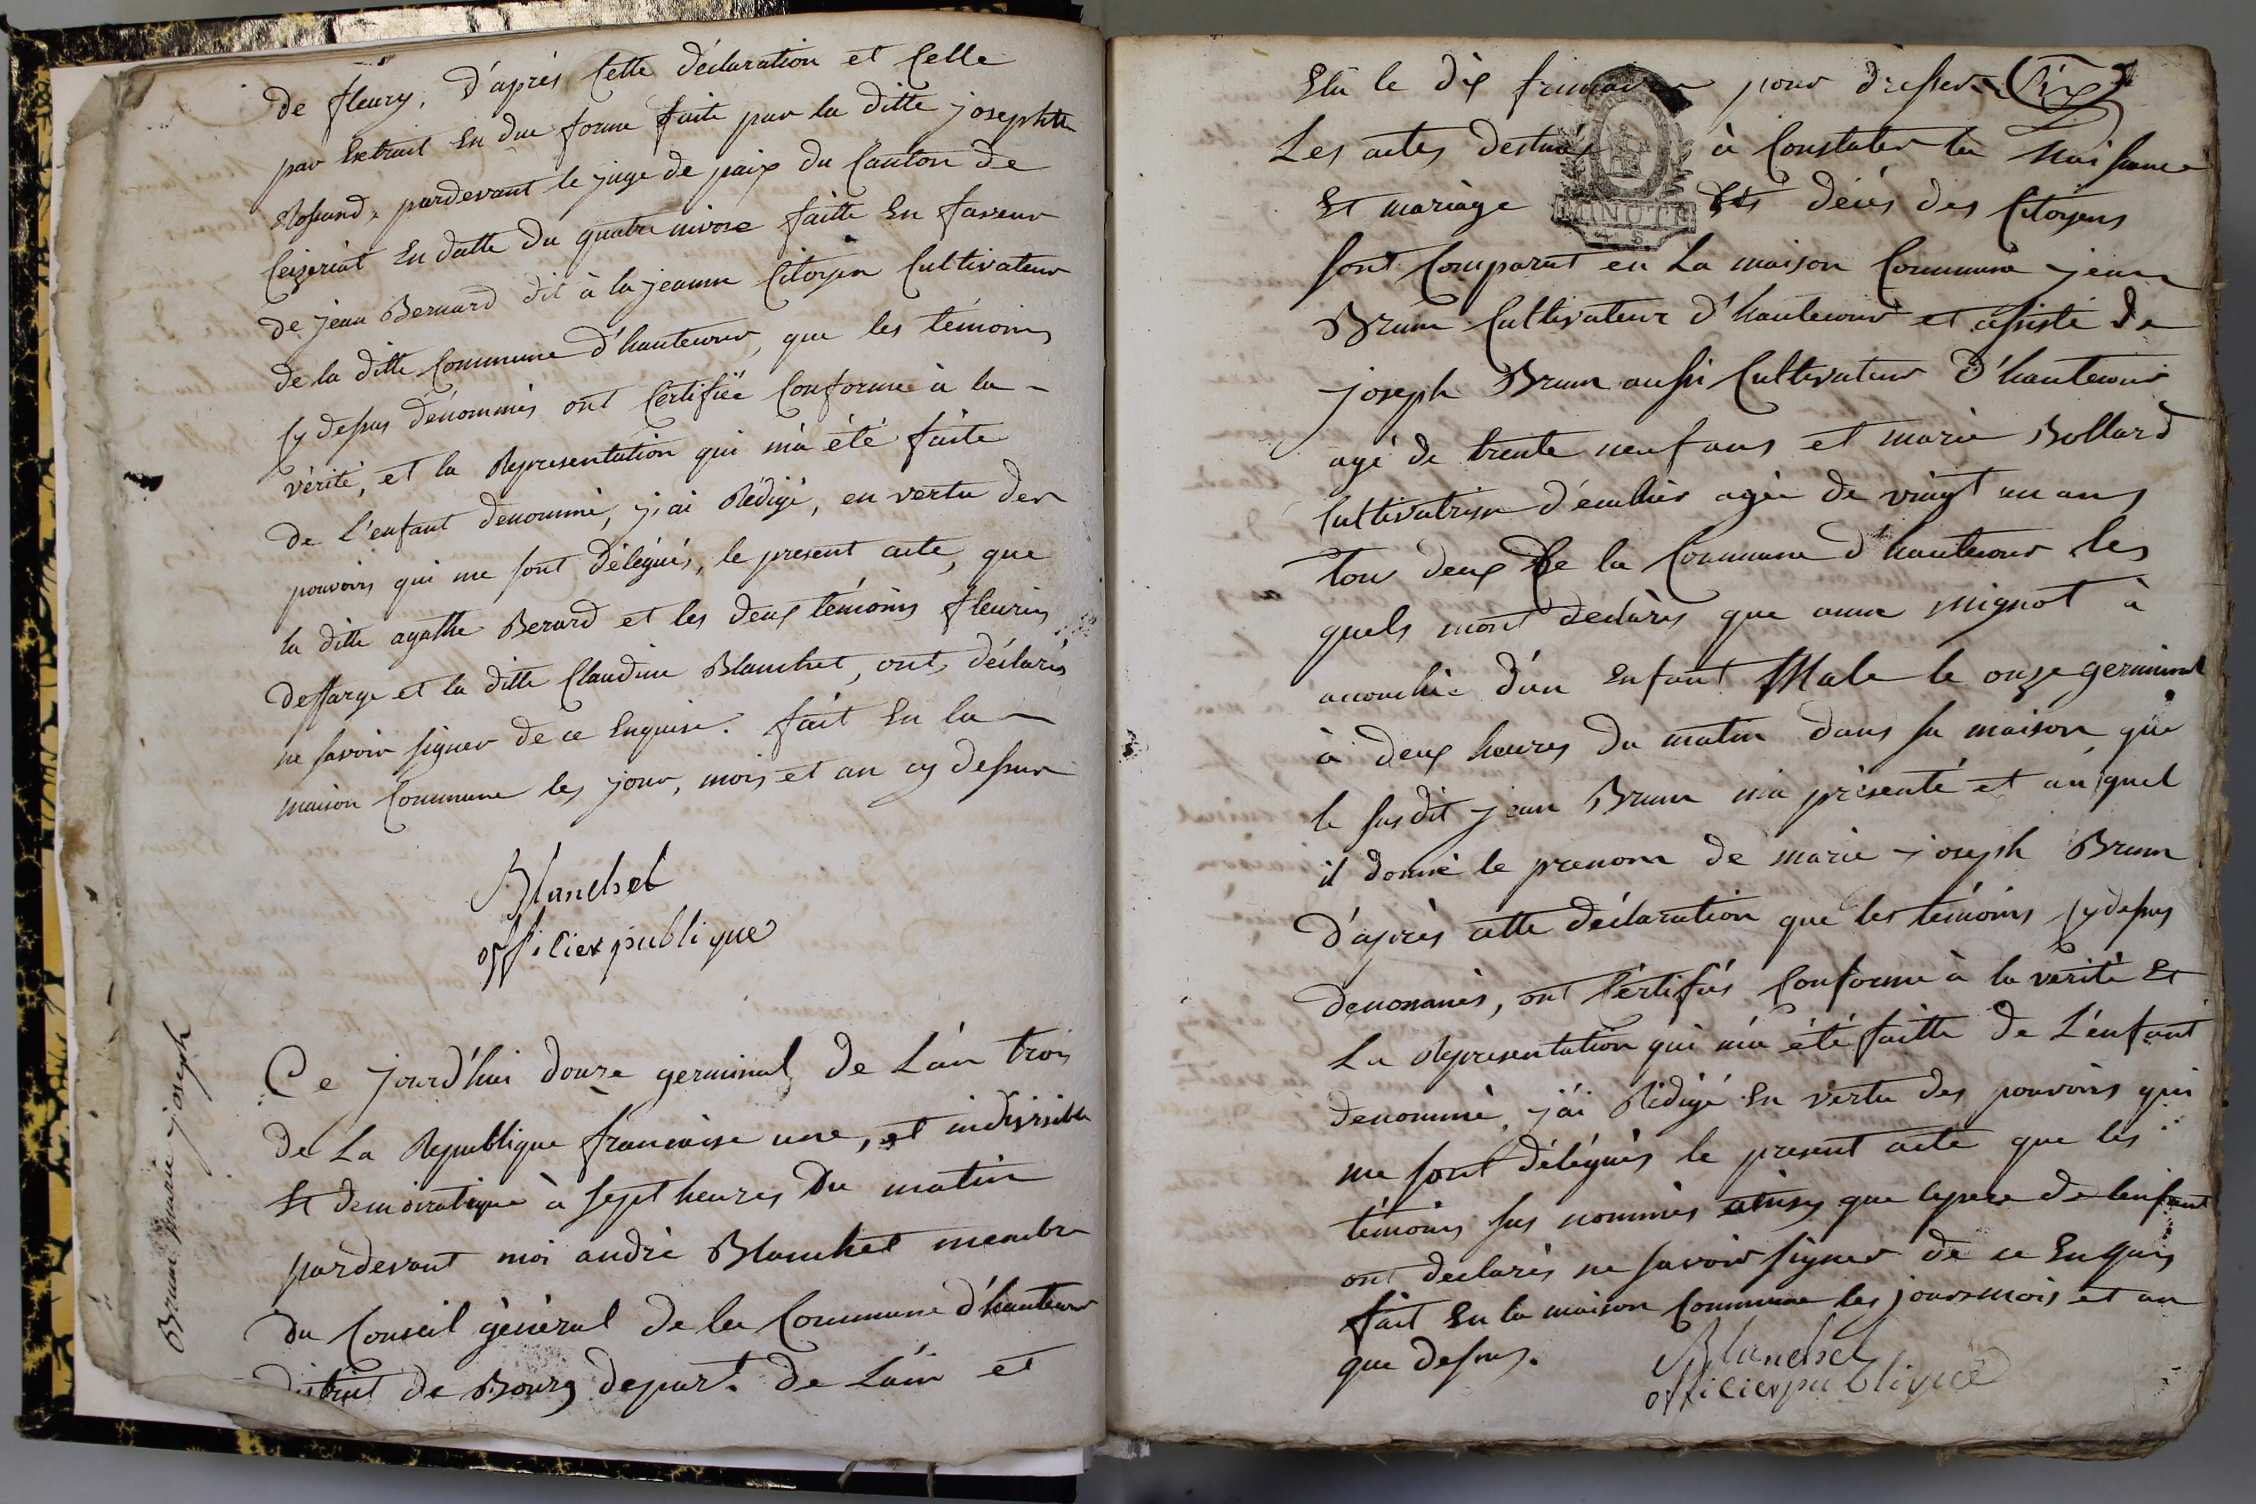 De fleury, D'après Cette déclaration et Celle
par Extrait En due forme faite par la ditte josephte
pardevant le juge de paix du Canton de
Ceizeriat En datte du quatre nivose faitte En faveur
de jean Bernard dit à la jeanne Citoyen Cultivateur
de la ditte Commune d'hautecour, que les témoins
Cy dessus dénommés ont Certifiée Conforme à la
vérité, et la Representation qui m'a été faite
de L'enfant denommé, j'ai Rédigé, en vertu des
pouvoirs qui me sont délégués, le present acte, que
la ditte agathe Berard et les deux témoins fleurin
deffarge et la ditte Claudine Blanchet, ont, déclarés
ne savoir signer de ce Enquise. fait En la
maison Commune les jour, mois et an cy dessus
Blanchet
officier publique
Brun marie joseph
Ce jourd'hui douze germinal de L'an trois
de La Republique francaise une, et indivisible
Et democratique à sept heures Du matin
pardevant moi andré Blanchet membre
du Conseil général de la Commune d'hautecour
district de Bourg depart. de L'ain et
Elu le dix frimaire pour dresser Six
Les actes destinés à Constater la Naissance
Et mariage Et décès des Citoyens
MINUTE
sont Comparut en La maison Commune jean
Brun Cultivateur d'hautecour et assisté de
joseph Brun aussi Cultivateur d'hautecour
agé de trente neuf ans et marie Bollard
Cultivatrisse agée de vingt un ans
tous deux De la Commune d'hautecour les
quels mont declarés que anne Mignot à
accouchée d'un Enfant Male le onze germinal
à deux heures du matin dans sa maison, que
le susdit jean Brun m'a présenté et au quel
il donné le prenom de marie joseph Brun
D'après cette déclaration que les témoins Cy dessus
denommés, ont Certifiés Conforme à la vérité Et
La Representation qui m'a été faitte de L'enfant
denommé, j'ai Rédigé En vertu des pouvoirs qui
me sont délégués le present acte que les
témoins sus nommés ainsy que le pere de lenfant
ont declarés ne savoir signer de ce Enquis
fait En la maison Commune les jour mois et an
que dessus.
Blanchet
officier publique